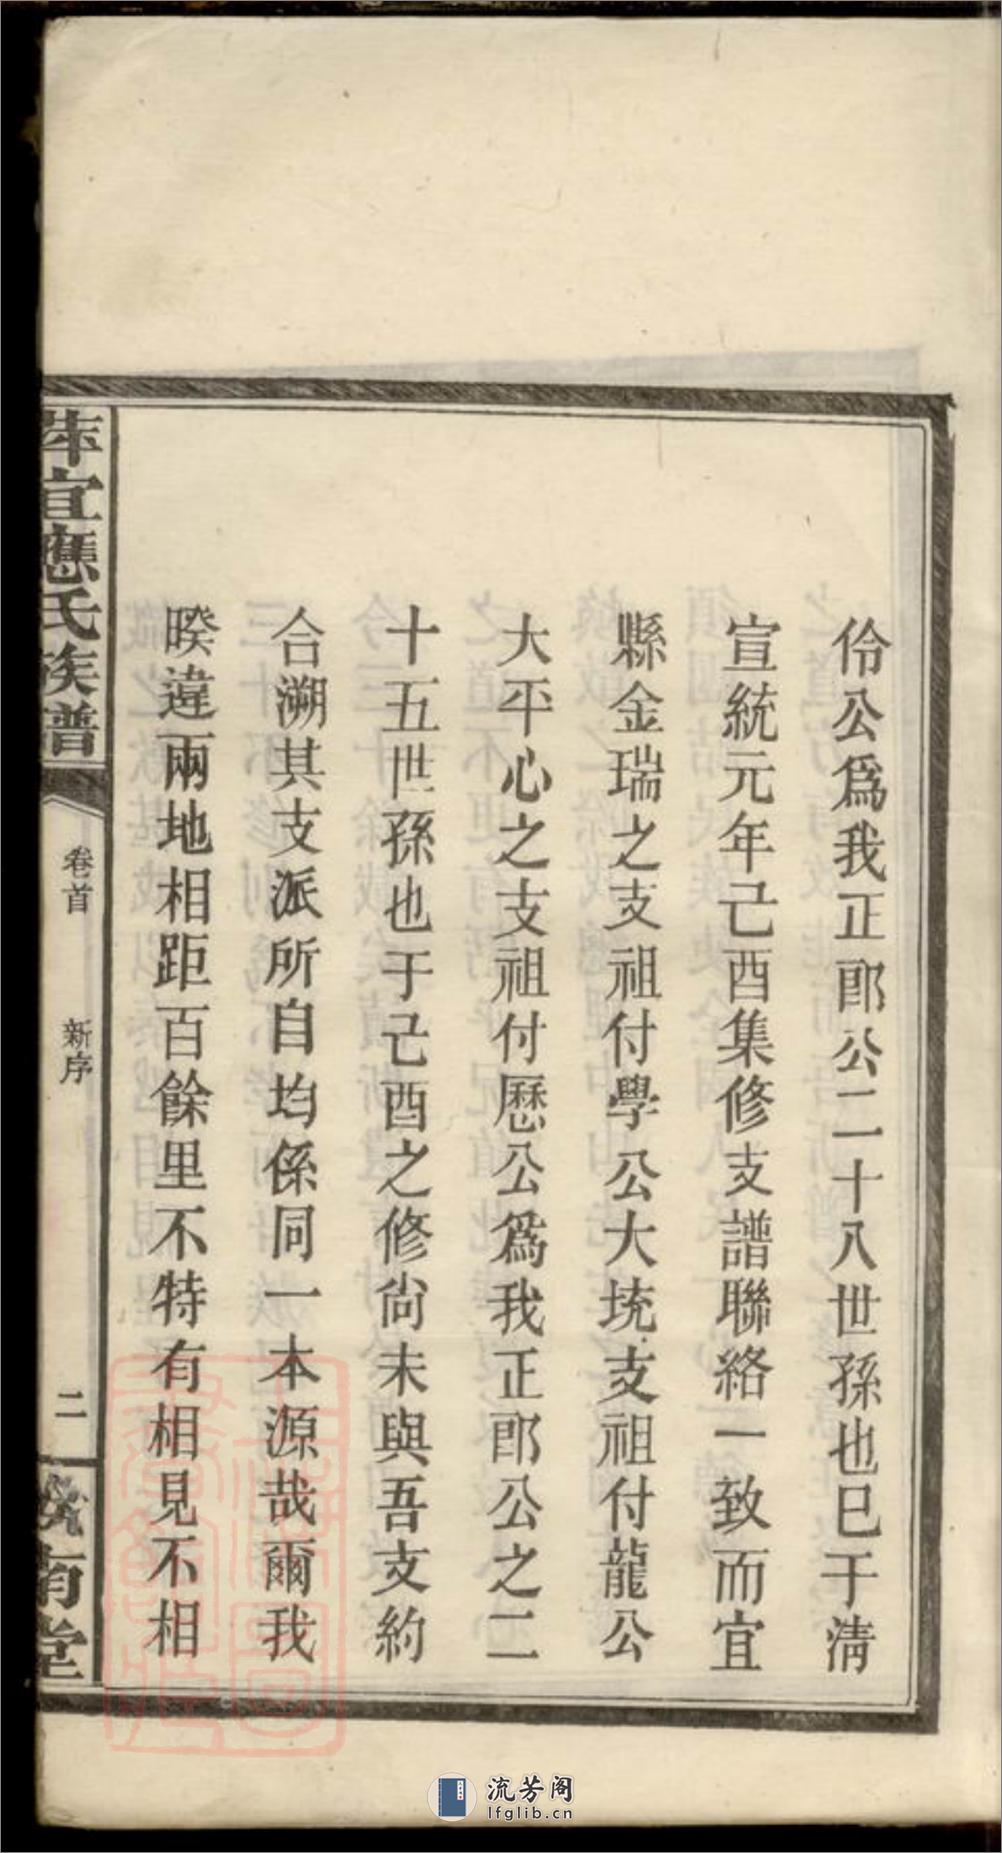 伶公爲我正郎公二十八世孫也已于淸
宣統元年己酉集修支譜聯絡一致而宜
縣金瑞之支祖付學公大㘬支祖付龍公
大平心之支祖付歷公爲我正郎公之二
十五世孫也于己酉之修尙未與吾支約
合溯其支派所自均係同一本源哉爾我
暌違兩地相距百餘里不特有相見不相
萍宜應氏族譜
卷首
新序
二
南堂
流芳阁
lfglib.cn